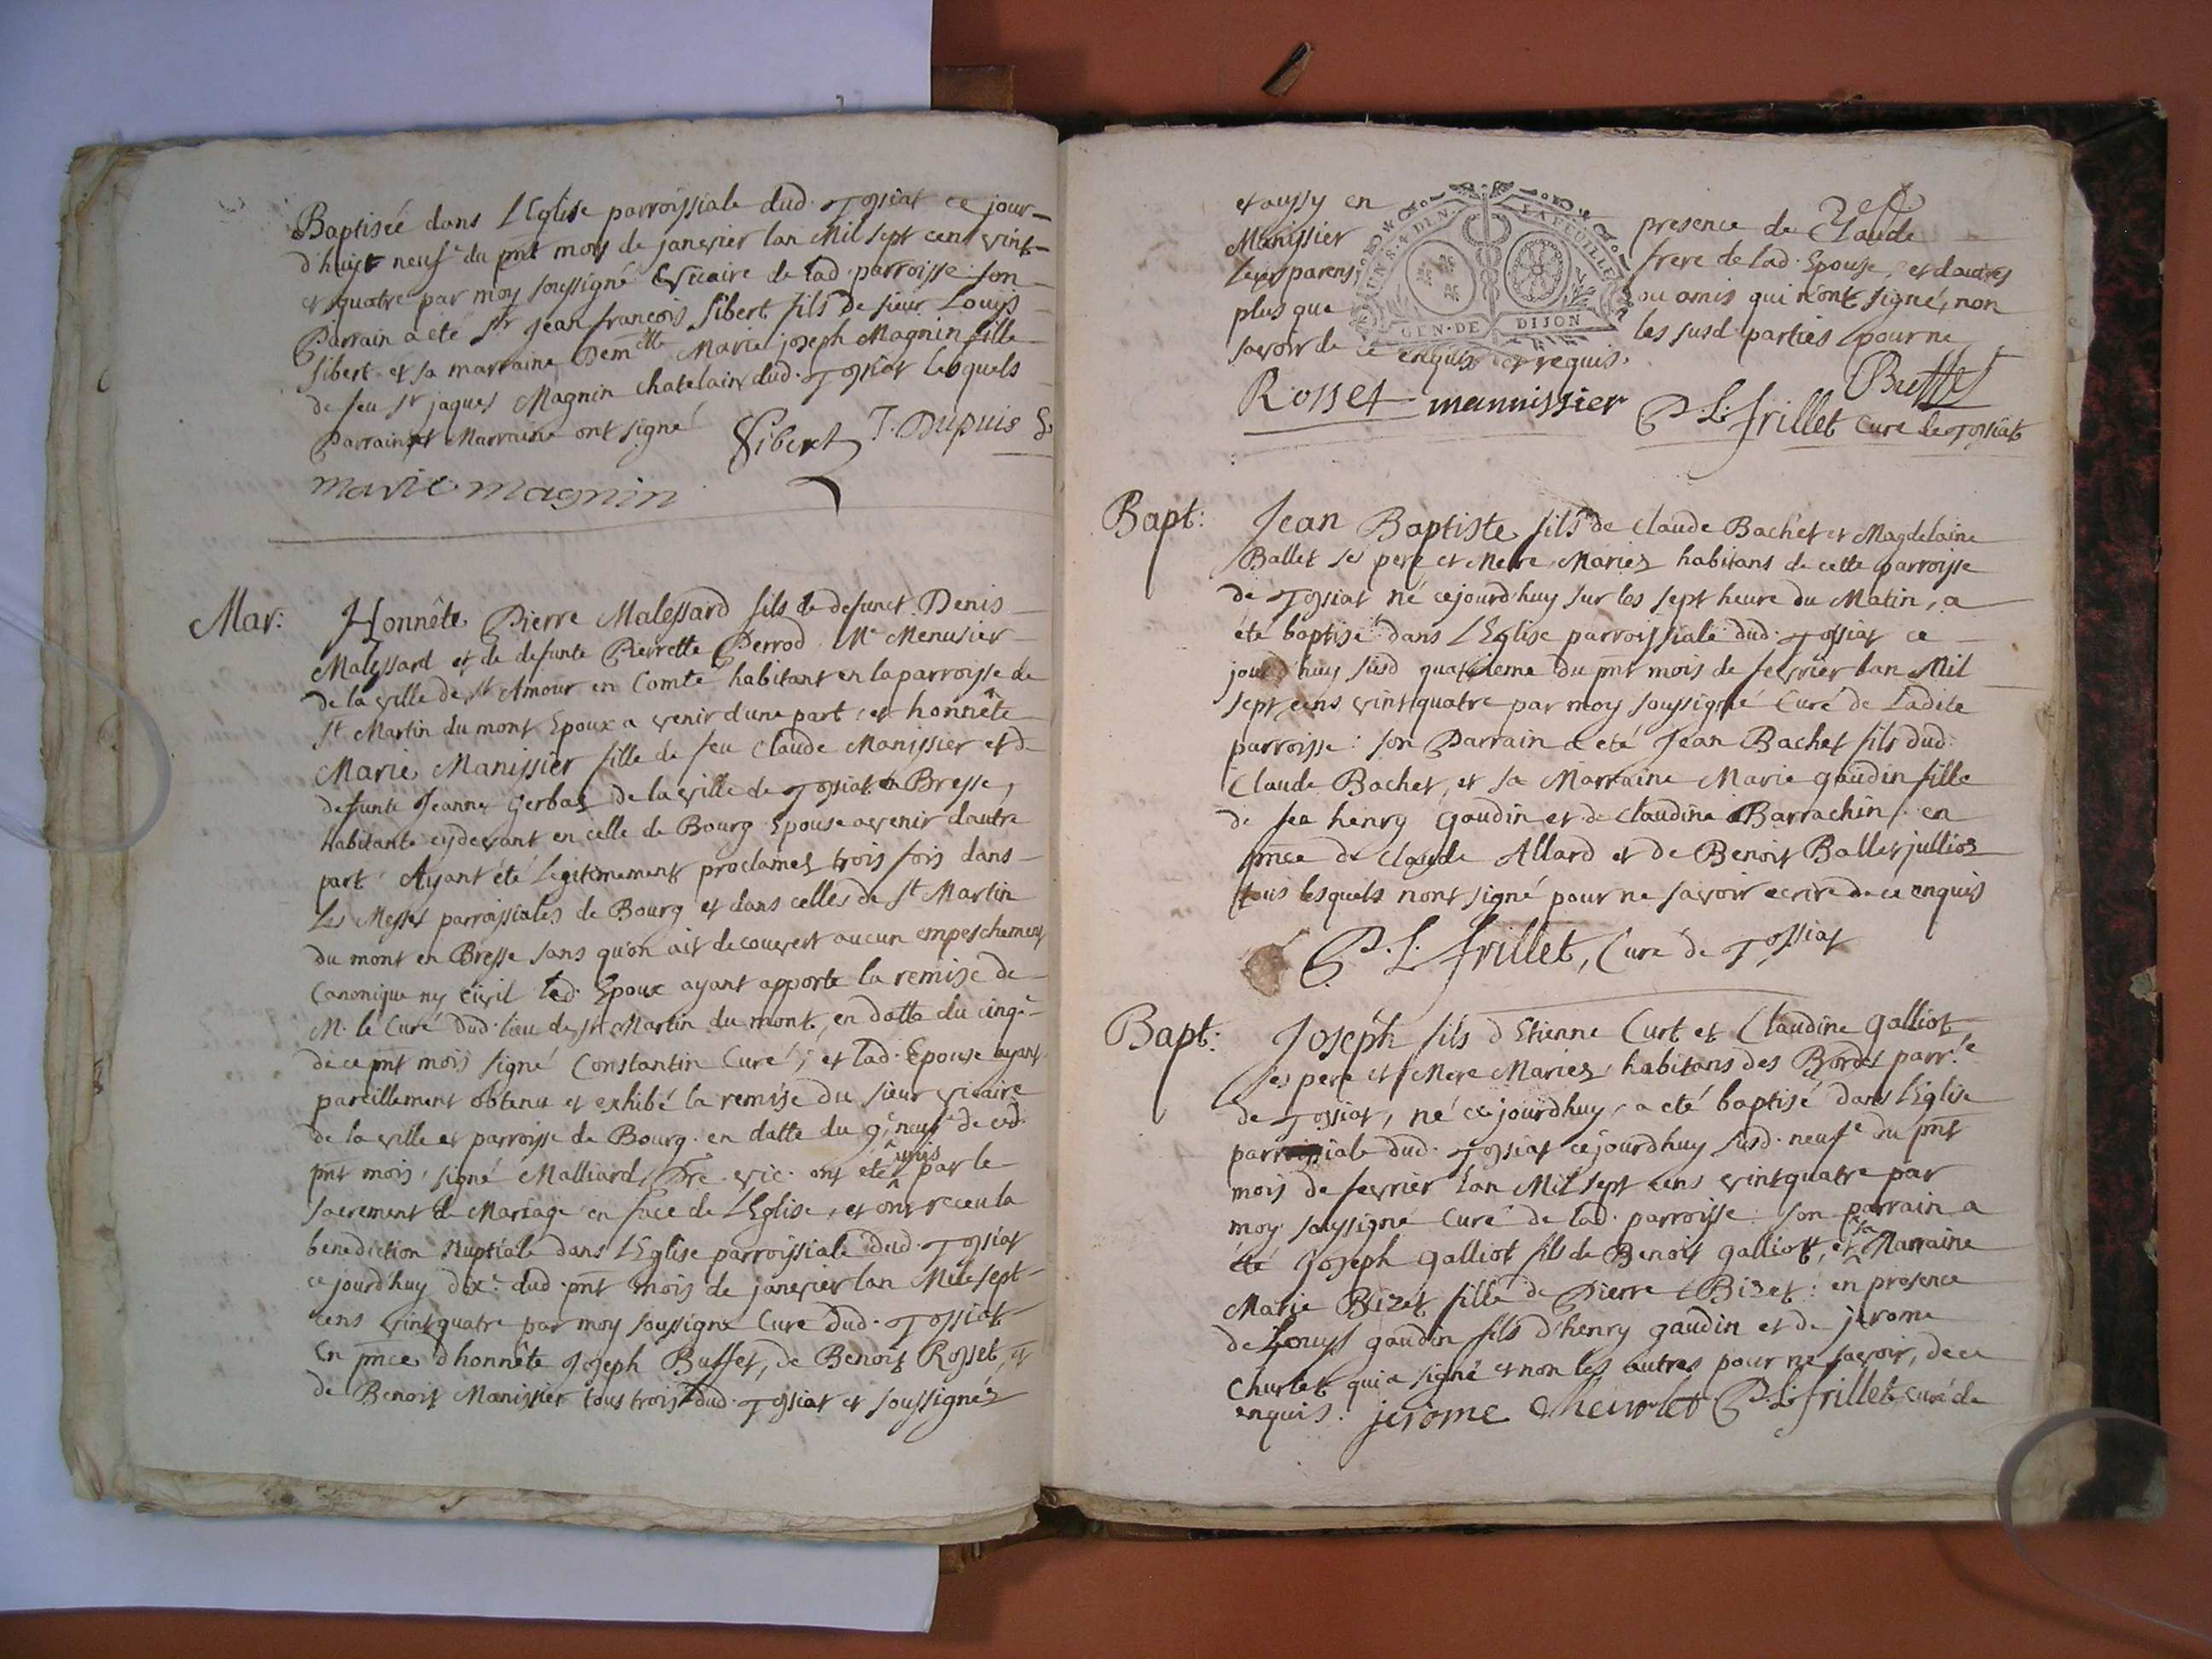 Baptisée dans L'Eglise parroissiale dud. Tossiat ce jour-
d'huy neuf.e du pnt mois de janvier lan Mil sept cent vint-
et quatre par moy soussigné Vicaire de lad. parroisse. son
Parrain a été Sr Jean francois Sibert fils de sieur Louys
Sibert et sa marraine Dem.elle Marie joseph Magnin fille
de feu Sr jaques Magnin Chatelain dud. Tossiat lesquels
Parrain et Marraine ont signé
Sibert J. Dupuis
marie magnin
Mar: Honnête Pierre Malessard fils de defunct Denis
Malessard et de defunte Pierrette Perrod Me Menusier
de la ville de St Amour en Comté habitant en la parroisse de
St Martin du mont Epoux a venir d'une part, et honnête
Marie Manissier fille de feu Claude Manissier et de
defunte Jeanne Gerbas de la ville de Tossiat en Bresse,
habitante cydevant en celle de Bourg Epouse avenir dautre
part. Ayant été Legitimement proclamez trois fois dans
Les Messes parroissiales de Bourg et dans celles de St Martin
du mont en Bresse sans qu'on ait decouvert aucun empeschement
Canonique ny Civil led. Epoux ayant apporté la remise de
M. le Curé dud. lieu de St Martin du mont, en datte du cinqe
de ce pnt mois signé Constantin Curé; et lad. Epouse ayant
pareillement obtenu et exhibé la remise du sieur vicaire
de la ville et parroisse de Bourg en datte du 9e neufe de ced.
pnt mois, signé Malliard Pre. vic. ont été unis par le
sacrement de Mariage en face de L'Eglise, et ont receu la
benediction Nuptiale dans L'Eglise parroissiale dud. Tossiat
ce jourdhuy dixe dud. pnt mois de janvier lan Mil sept
cens vint quatre par moy soussigné Curé dud. Tossiat
En pnce d'honnête Joseph Buffet, de Benoit Rosset, et
de Benoit Manissier tous trois dud. Tossiat et soussignéz
et aussy en presence de Claude
Manissier frere de lad. Epouse, et dautres
leurs parens, ou amis qui n'ont signé, non
plus que les susd. parties pour ne
savoir de ce enquis et requis.
UN S. 4 DEN. LA FEUILLE
GEN. DE DIJON
Buffet
Rosset mannissier P. L. frillet Curé de Tossiat
Bapt: Jean Baptiste fils de Claude Bachet et Magdelaine
Ballet ses pere et Mere Mariez habitans de cette parroisse
de Tossiat né cejourdhuy sur les sept heure du Matin, a
été baptisé dans L'Eglise parroissiale dud. Tossiat ce
jourd'huy susd quatrieme du pnt mois de fevrier lan Mil
sept cens vint quatre par moy soussigné Curé de Ladite
parroisse: son Parrain a eté Jean Bachet fils dud.
Claude Bachet, et sa Marraine Marie gaudin fille
de feu henry gaudin et de Claudine Barrachin, en
pnce de Claude Allard et de Benoit Ballet jullioz
tous lesquels nont signé pour ne savoir ecrire de ce enquis
P. L. frillet, Curé de Tossiat
Bapt: Joseph fils d'Etienne Curt et Claudine galliot
ses pere et Mere Mariez habitans des Bordes parr.e
de Tossiat, né ce jourdhuy, a eté baptisé dans L'Eglise
parroissiale dud. Tossiat cejourdhuy susd. neufe du pnt
mois de fevrier lan Mil sept cens vint quatre par
moy soussigné Curé de lad. parroisse: son parrain a
été Joseph galliot fils de Benoit galliot, et sa Marraine
Marie Bizet fille de Pierre Bizet: en presence
de Louys gaudin fils d'henry gaudin et de jerome
Churlet qui a signé et non les autres pour ne savoir, de ce
enquis. jerome Cheurlet P. L. frillet Curé de